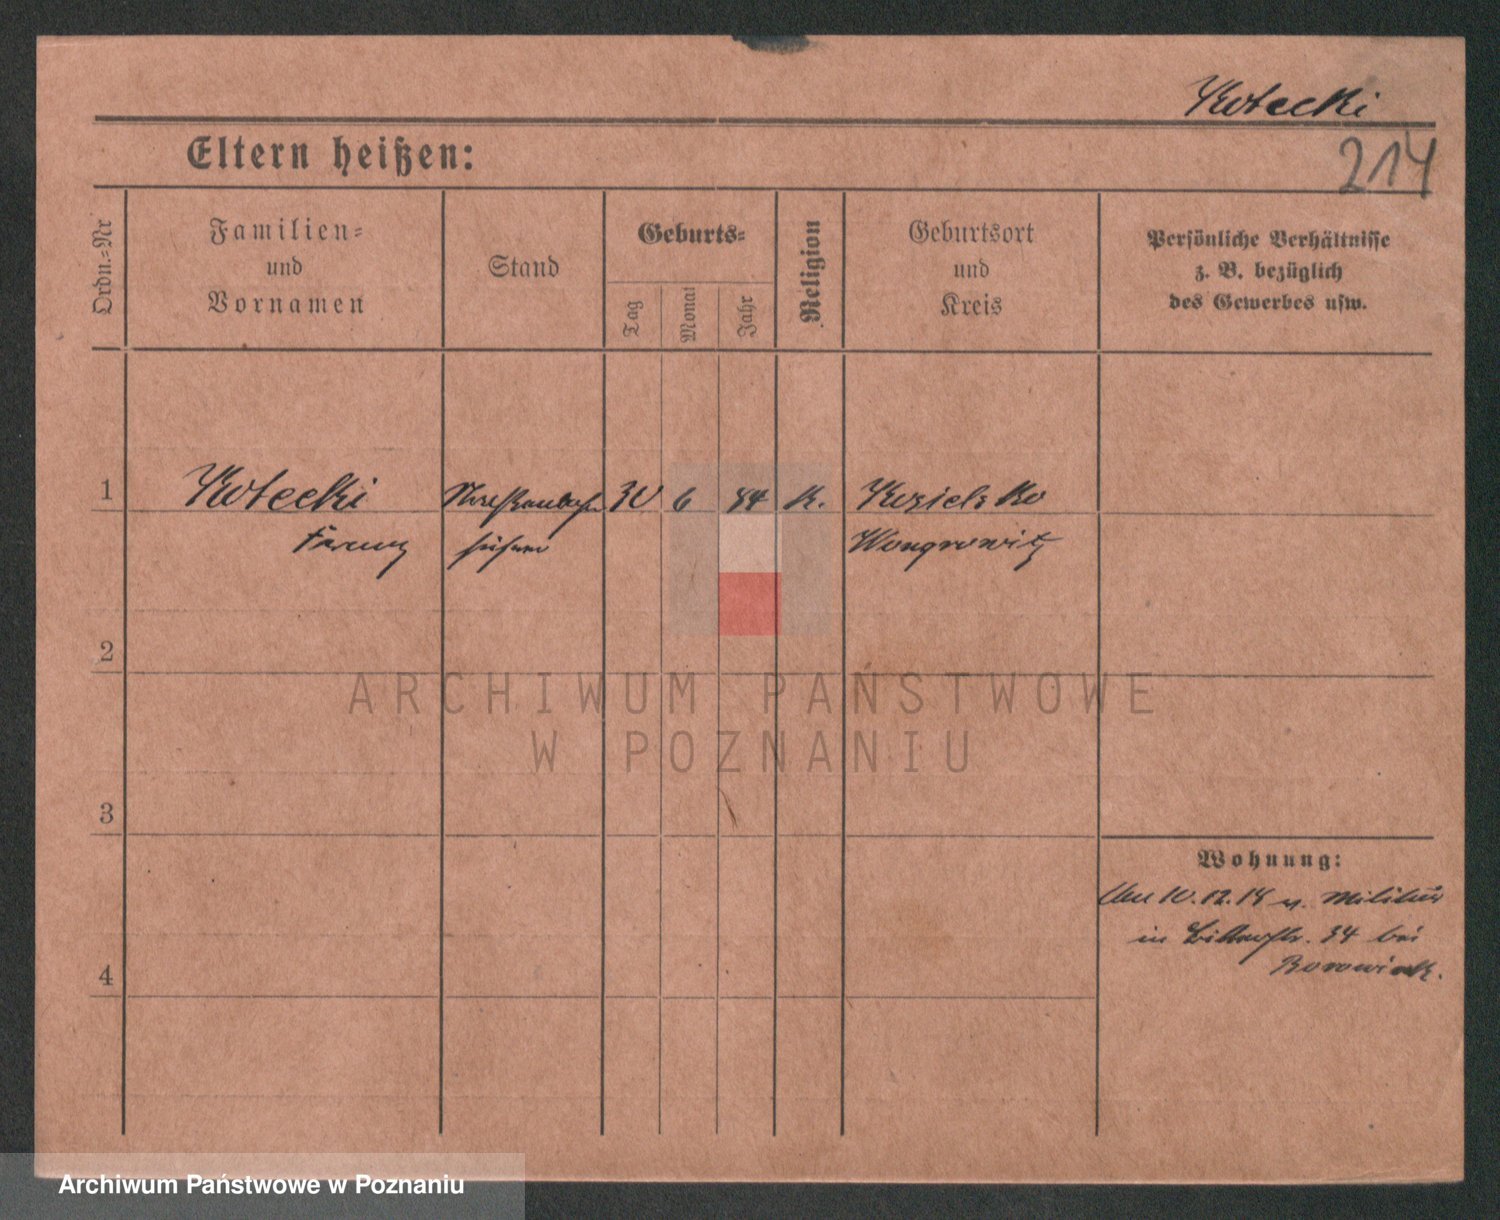 Kotecki
214
Eltern heißen:
Ordn.=Nr
Familien=
und
Vornamen
Stand
Geburts=
Tag
Monat
Jahr
Religion
Geburtsort
und
Kreis
Persönliche Verhältnisse
z. B. bezüglich
des Gewerbes usw.
1
Kotecki
Franz
Straßenbahn
führer
30
6
84
K.
Kozielsko
Wongrowitz
2
3
4
Wohnung:
10.12.18 v. Militär
in 34 bei
Borowiak.
ARCHIWUM PAŃSTWOWE
W POZNANIU
Archiwum Państwowe w Poznaniu